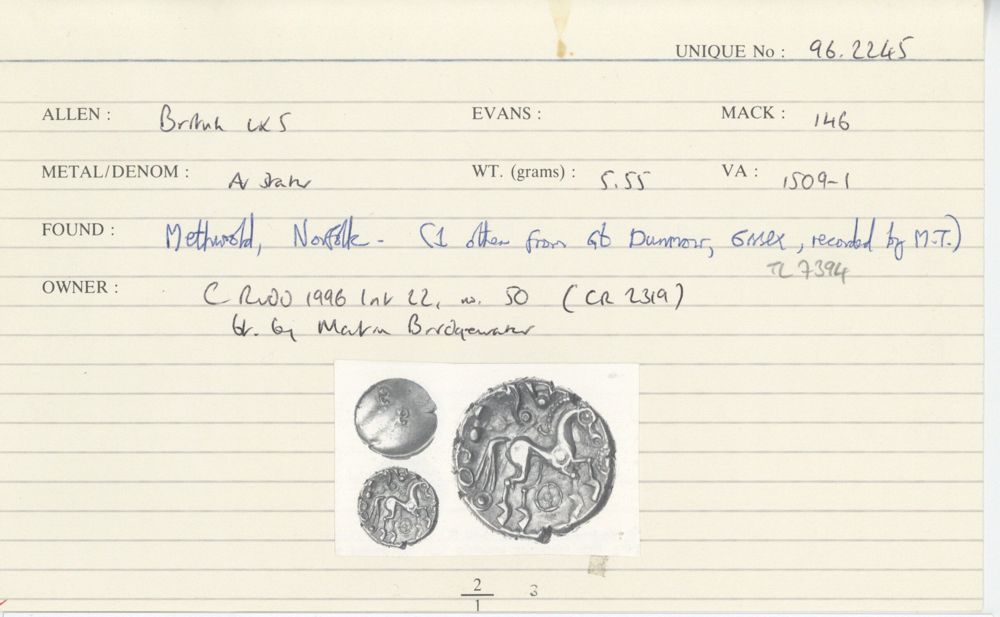 UNIQUE No : 96.2245
ALLEN : British LX5 EVANS : MACK : 146
METAL/DENOM : AV stater WT. (grams) : 5.55 VA : 1509-1
FOUND : Methwold, Norfolk - (1 other from Gt Dunmow, Essex, recorded by M.T.)
TL 7394
OWNER : C Rudd 1996 list 22, no. 50 (CR 2319)
bt. by Martin Bridgewater
2
1 3